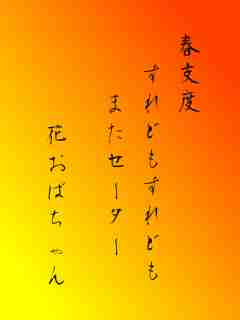 春支度
すれどもすれども
またセーター
花おばちゃん